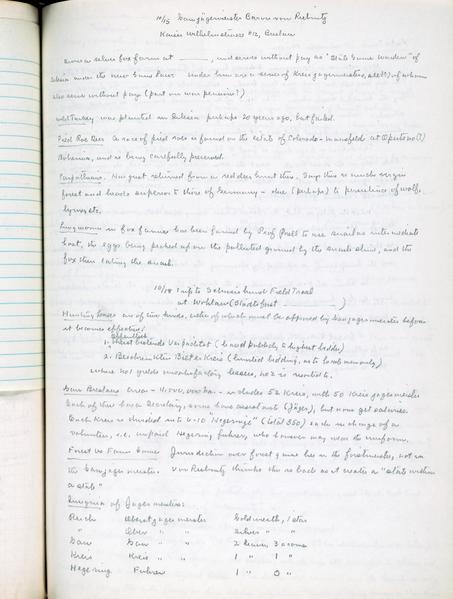 10/15 Gaujägermeister Baron von Reibnitz
Kaiser Wilhelmstrasse #12, Breslau
owns a silver fox farm at ______, and serves without pay as "State Game Warden" of
Silesia under the new Game Law. Under him are a series of Kreisjagermeisters, all(?) of whom
also serve without pay (part on war pension?)
Wild Turkey was planted in Silesia perhaps 20 years ago, but failed.
Pied Roe Deer A race of pied roes is found on the estate of Colloredo-Mansfeld at
Bohemia, and is being carefully preserved.
Carpathians. Has just returned from a red deer hunt there. Says there is much virgin
forest and heads superior to those of Germany - due (perhaps) to persistence of wolf,
lynx, etc.
Lungworm in fox farms has been found by Prof to use snail as intermediate
host, the eggs being picked up on the polluted ground by the snails slime, and the
fox then eating the snail.
10/18 Trip to Schweisshund Field Trial
at Wohlau (Stadtforst ______)
Hunting leases are of two kinds, either of which must be approved by Gaujagermeister before
it becomes effective:
1. Meistbietende Verpachtung (leased publicly to highest bidder)
2. Beschränkten Bieterkreis (limited bidding, as to locals men only)
where no 1 yields unsatisfactory lessees, no 2 is resorted to.
Gau Breslau. area - includes 52 Kreis, with 50 Kreisjagermeister
Each of these has a Secretary, some have assistants (Jäger), but none get salaries.
Each Kreis is divided into 6-10 "Hegeringe" (total 350) each in charge of a
volunteer, i.e. unpaid Hegering fuhrer, who however may wear the uniform.
Forest vs Farm Game Jurisdiction over forest game lies in the forstmeister, not in
the Gaujagermeister. Von Reibnitz thinks this is bad as it creates a "state within
a state"
Insignia of Jagermeisters:
Reich Oberstjagermeister Gold wreath, 1 star
" Ober " " silver " "
Gau Gau " " 2 leaves, 3 acorns
Kreis Kreis " " 1 " 1 "
Hegering Fuhrer 1 " 0 "